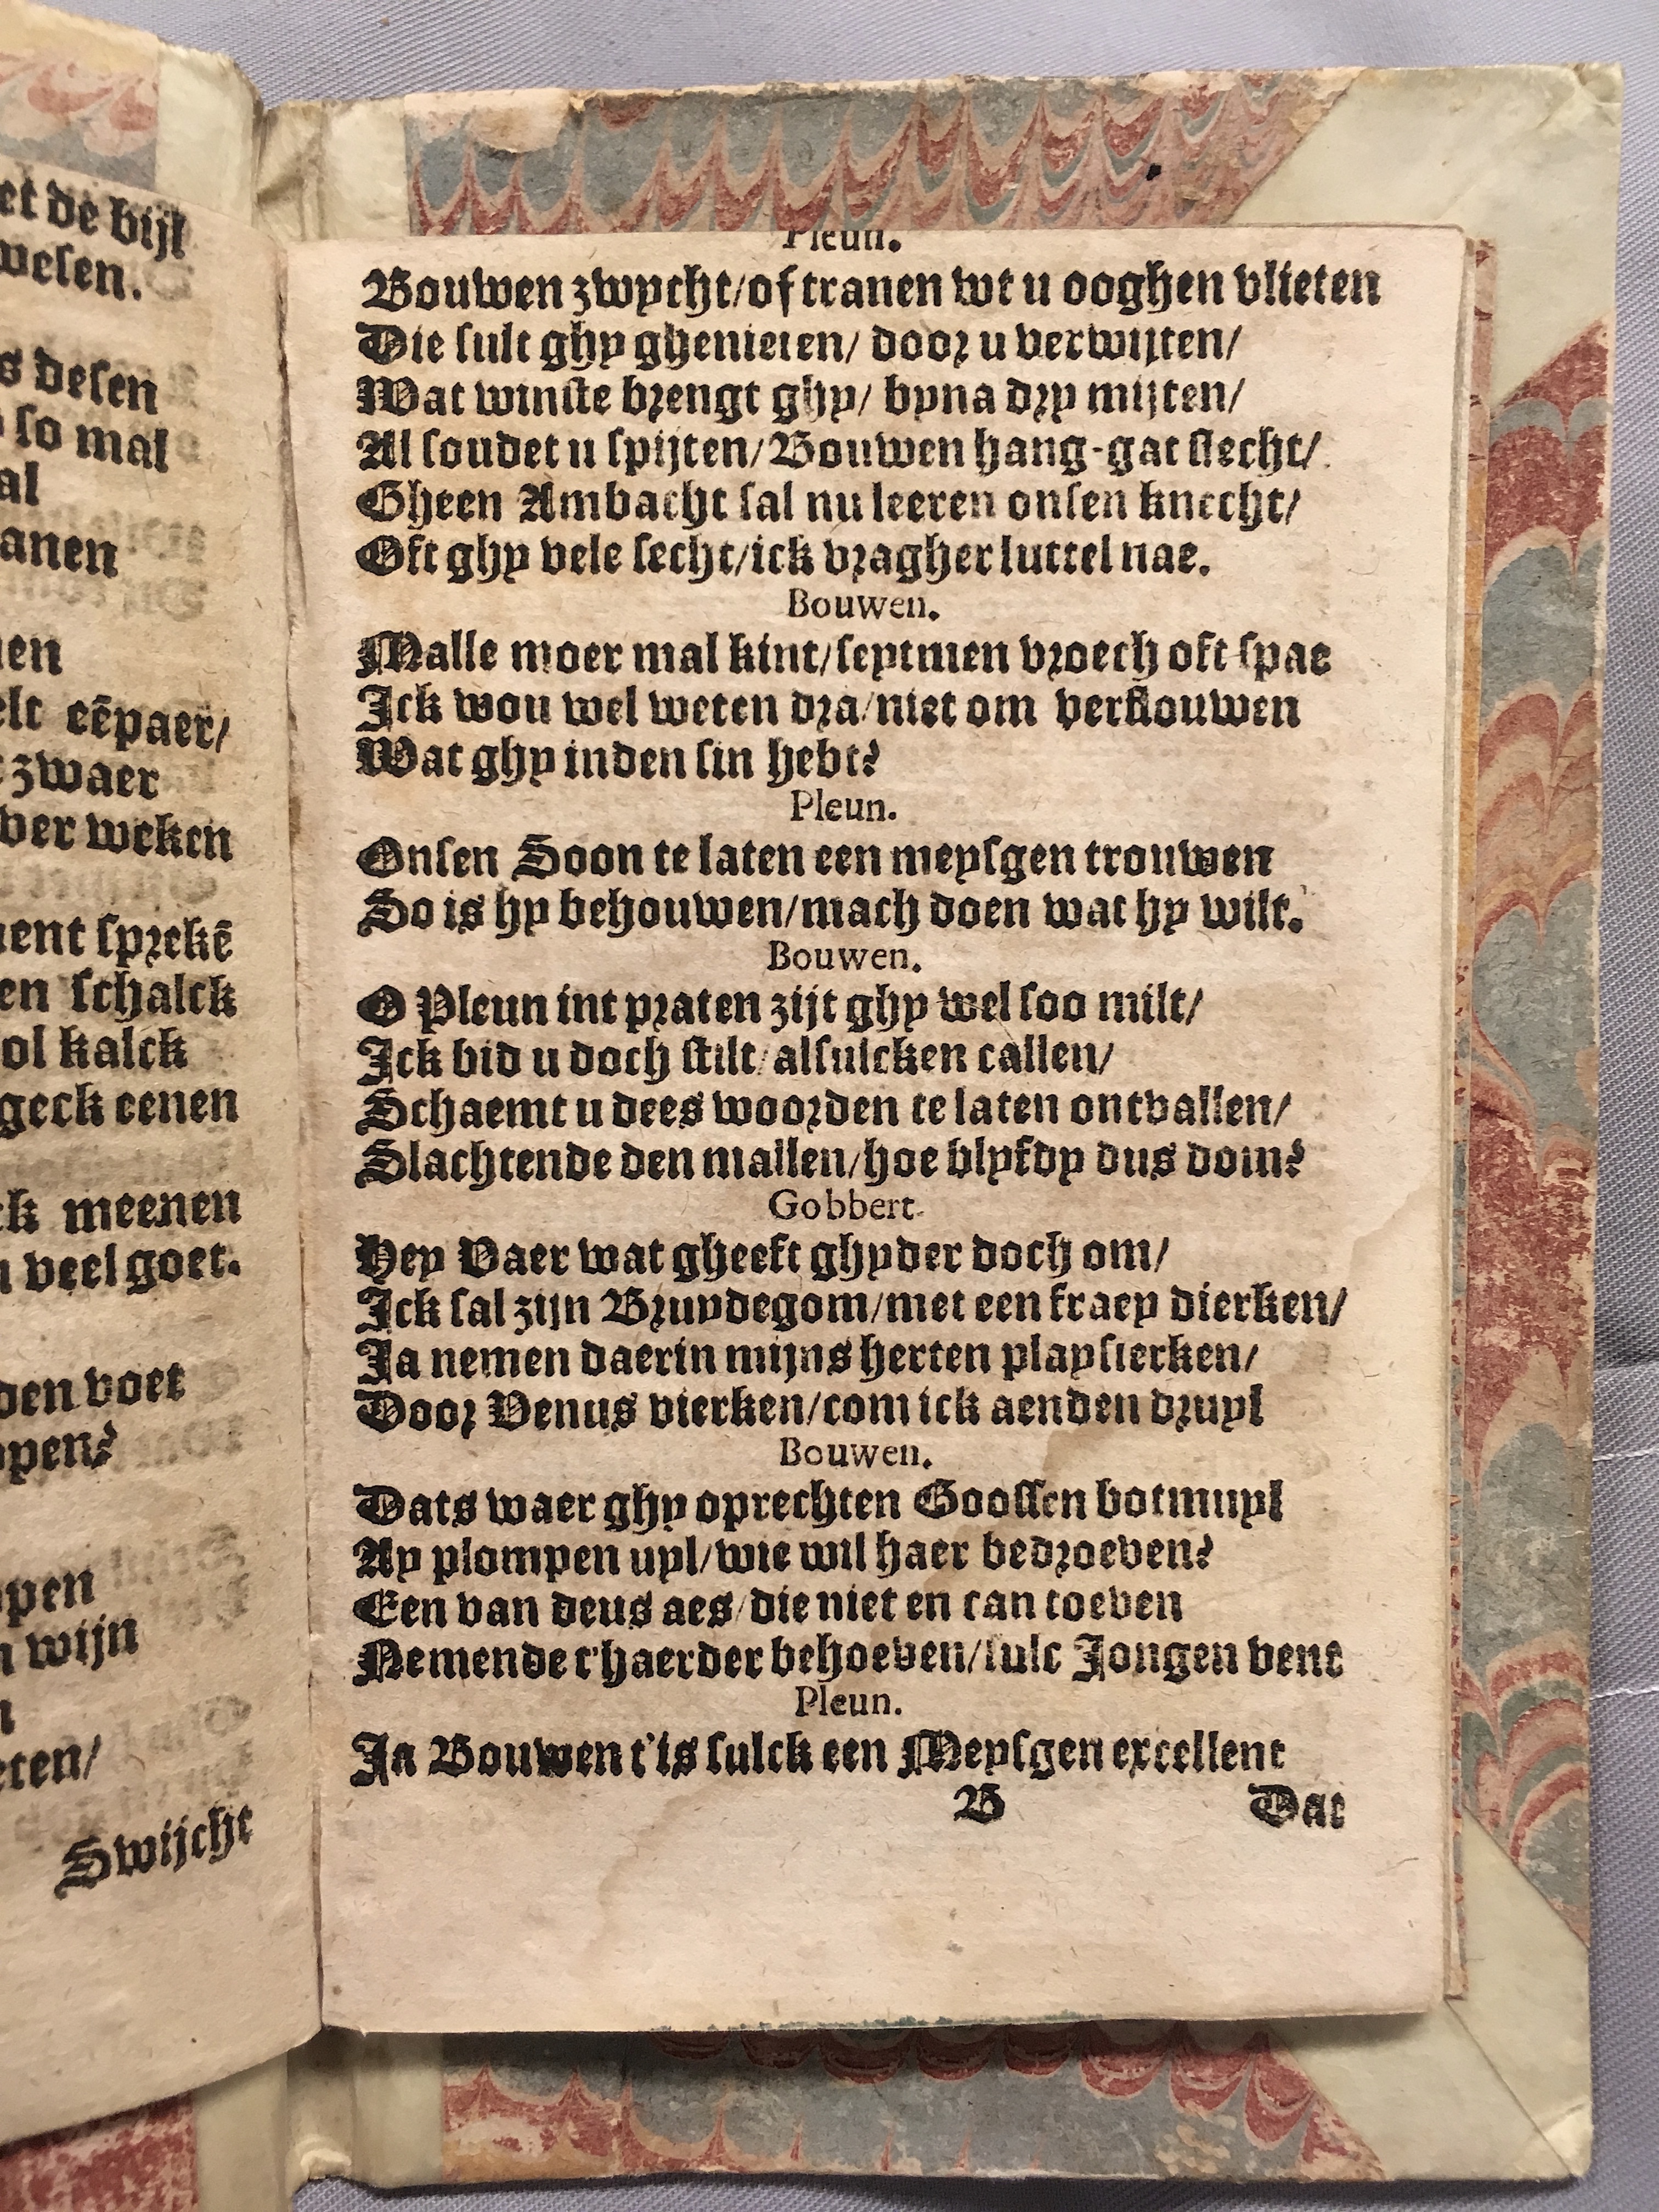 et de bijl
wesen.
s desen
so mal
al
anen
en
elt eēpaer/
zwaer
ver weken
ent sprekē
en schalck
ol kalck
geck eenen
ck meenen
n veel goet.
den voet
open?
open
n wijn
eten/
Swijcht
Pleun.
Bouwen zwycht/of tranen wt u ooghen vlieten
Die sult ghy ghenieten/ door u verwijten/
Wat winste brengt ghy/ byna dry mijten/
Al soudet u spijten/Bouwen hang-gat slecht/
Gheen Ambacht sal nu leeren onsen knecht/
Oft ghy vele secht/ick vragher luttel nae.
Bouwen.
Malle moer mal kint/seytmen vroech oft spae
Ick wou wel weten dra/niet om verflouwen
Wat ghy inden sin hebt?
Pleun.
Onsen Soon te laten een meysgen trouwen
So is hy behouwen/mach doen wat hy wilt.
Bouwen.
O Pleun int praten zijt ghy wel soo milt/
Ick bid u doch stilt/alsulcken callen/
Schaemt u dees woorden te laten ontvallen/
Slachtende den mallen/hoe blyfdy dus dom?
Gobbert.
Hey Vaer wat gheeft ghyder doch om/
Ick sal zijn Bruydegom/met een fraey dierken/
Ja nemen daerin mijns herten playsierken/
Door Venus vierken/com ick aenden druyl
Bouwen.
Dats waer ghy oprechten Goossen botmuyl
Ay plompen uyl/wie wil haer bedroeven?
Een van deus aes/die niet en can toeven
Nemende t'haerder behoeven/sulc Jongen vent
Pleun.
Ja Bouwen t'is sulck een Meysgen excellent
B Dat